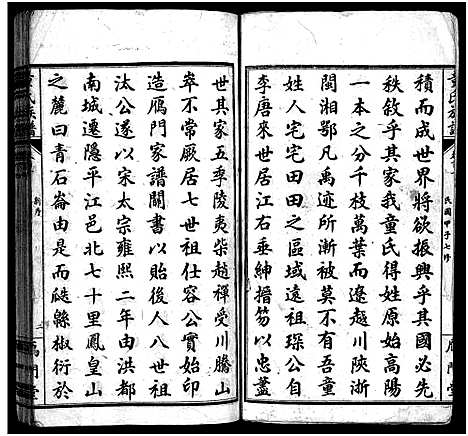 童氏族譜
民國甲子七修
雁門堂
積而成世界將欲振興乎其國必先
秩敘乎其家我童氏得姓原始高陽
一本之分千枝萬葉而越川陝浙
閩湘鄂凡禹迹所漸被莫不有吾童
姓人宅宅田田之區域遠祖琛公自
李唐來世居江右垂紳搢笏以忠藎
世其家五季陵夷柴趙禪受川騰山
崒不常厥居七世祖仕公實始印
造雁門家譜關書以貽後人八世祖
汰公遂以宋太宗雍熙二年由洪都
南城遷隱平江邑北七十里鳳皇山
之麓曰青石崙由是而瓞緜椒衍於
氏族譜
新序
二
雁門堂